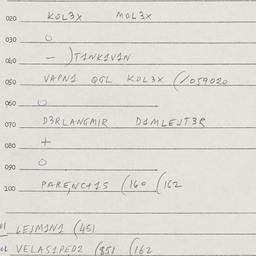 020 KOL3X MOL3X
030 O
040 — )T1NK1V1N
050 VAPN1 QGL KOL3X (/059020
060 O
070 D3RLANGMIR D1MLEJT3R
080 +
090 O
100 PARENCH1S (160 (162
LEJM1N1 (451
VELAS1PED2 (851 (162